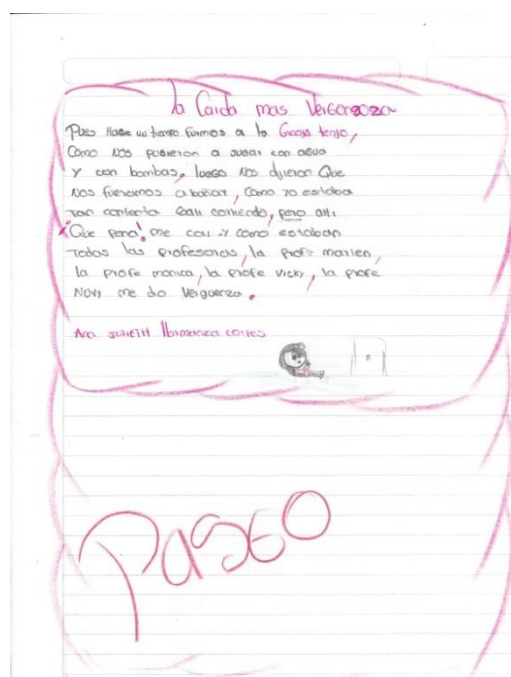 La Caida mas Vergonzoza
Pues Hase un tiempo fuimos a la Granja tenjo,
Como nos pusieron a jugar con agua
Y con bombas, luego nos dijeron Que
nos fueramos a bañar, Como yo estaba
tan contenta sali corriendo, pero alli
¡Que pena! me cai y como estaban
todas las profesoras, la profe marlen,
la profe monica, la profe Vicky, la profe
Novy me dio verguenza.
Ana cortes
PASEO